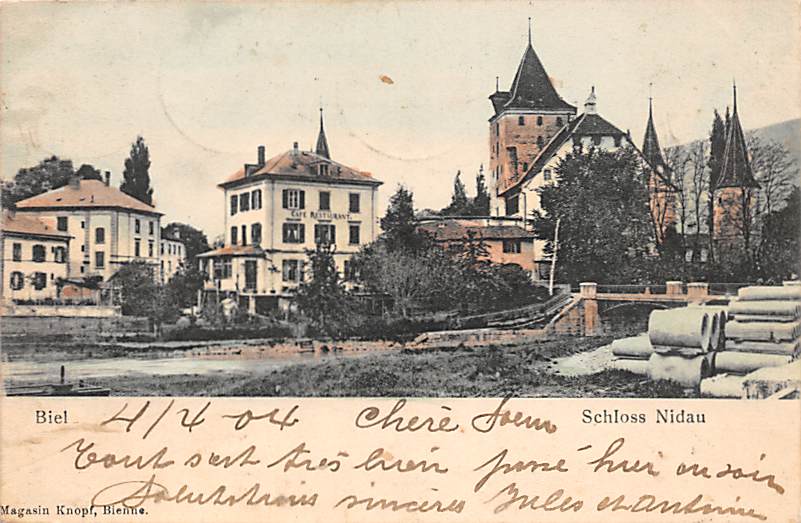 CAFÉ RESTAURANT
Biel
4/4 - 04 Cherè Soeur
Schloss Nidau
Tout sest très bien passé hier au soir
Salutations sincères Jules et Antoine
Magasin Knopf, Bienne.